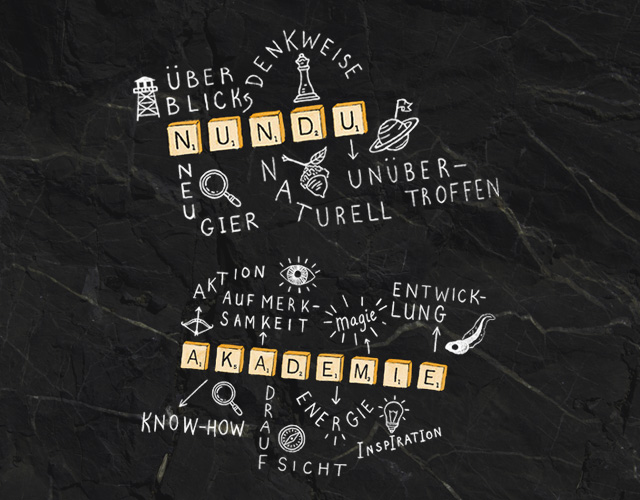 DENKWEISE
ÜBER
BLICKS
NUNDU
NEU
GIER
NATURELL
UNÜBER-
TROFFEN
AKTION
AUFMERK-
SAMKEIT
magie
ENTWICK-
LUNG
AKADEMIE
KNOW-HOW
DRAUFSICHT
ENERGIE
INSPIRATION